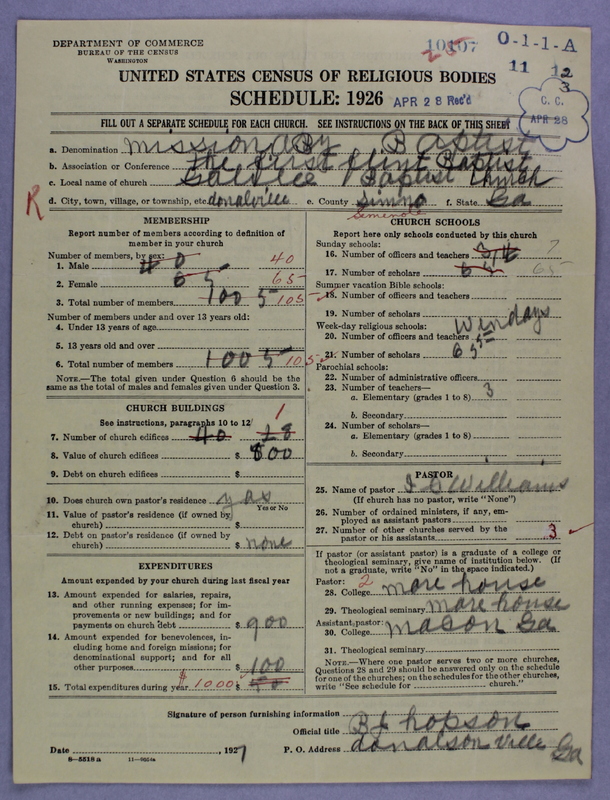 DEPARTMENT OF COMMERCE
BUREAU OF THE CENSUS
WASHINGTON
10107
O-1-1-A
11 12
3
UNITED STATES CENSUS OF RELIGIOUS BODIES
SCHEDULE: 1926
APR 28 Rec'd
C. C.
APR 28
FILL OUT A SEPARATE SCHEDULE FOR EACH CHURCH. SEE INSTRUCTIONS ON THE BACK OF THIS SHEET
a. Denomination missionary Baptist
b. Association or Conference the first flint Baptist
c. Local name of church Baptist Church
R d. City, town, village, or township, etc. donalville e. County Simno f. State Ga
Seminole
MEMBERSHIP
Report number of members according to definition of
member in your church
Number of members, by sex:
1. Male 40 40
2. Female 65 65
3. Total number of members 1005 105
Number of members under and over 13 years old:
4. Under 13 years of age
5. 13 years old and over
6. Total number of members 1005 105
NOTE.—The total given under Question 6 should be the
same as the total of males and females given under Question 3.
CHURCH BUILDINGS
See instructions, paragraphs 10 to 12
1
7. Number of church edifices 40 18
8. Value of church edifices $ 800
9. Debt on church edifices $
10. Does church own pastor's residence? yas
Yes or No
11. Value of pastor's residence (if owned by
church) $
12. Debt on pastor's residence (if owned by
church) $ none
EXPENDITURES
Amount expended by your church during last fiscal year
13. Amount expended for salaries, repairs,
and other running expenses; for im-
provements or new buildings; and for
payments on church debt $ 900
14. Amount expended for benevolences, in-
cluding home and foreign missions; for
denominational support; and for all
other purposes $ 100
15. Total expenditures during year 1000 $ 50
CHURCH SCHOOLS
Report here only schools conducted by this church
Sunday schools:
16. Number of officers and teachers 7
17. Number of scholars 65 65
Summer vacation Bible schools:
18. Number of officers and teachers
19. Number of scholars
Week-day religious schools:
20. Number of officers and teachers
21. Number of scholars 655
Parochial schools:
22. Number of administrative officers
23. Number of teachers—
a. Elementary (grades 1 to 8) 3
b. Secondary
24. Number of scholars—
a. Elementary (grades 1 to 8)
b. Secondary
PASTOR
25. Name of pastor I C Williams
(If church has no pastor, write "None")
26. Number of ordained ministers, if any, em-
ployed as assistant pastors
27. Number of other churches served by the
pastor or his assistants 3
If pastor (or assistant pastor) is a graduate of a college or
theological seminary, give name of institution below. (If
not a graduate, write "No" in the space indicated.)
Pastor: 2
28. College more house
29. Theological seminary more house
Assistant pastor:
30. College mason Ga
31. Theological seminary
NOTE.—Where one pastor serves two or more churches,
Questions 28 and 29 should be answered only on the schedule
for one of the churches; on the schedules for the other churches,
write "See schedule for church."
Signature of person furnishing information BJ hopson
Official title
Date , 1927 P. O. Address donalson Ville Ga
8—5518 a 11—9624a